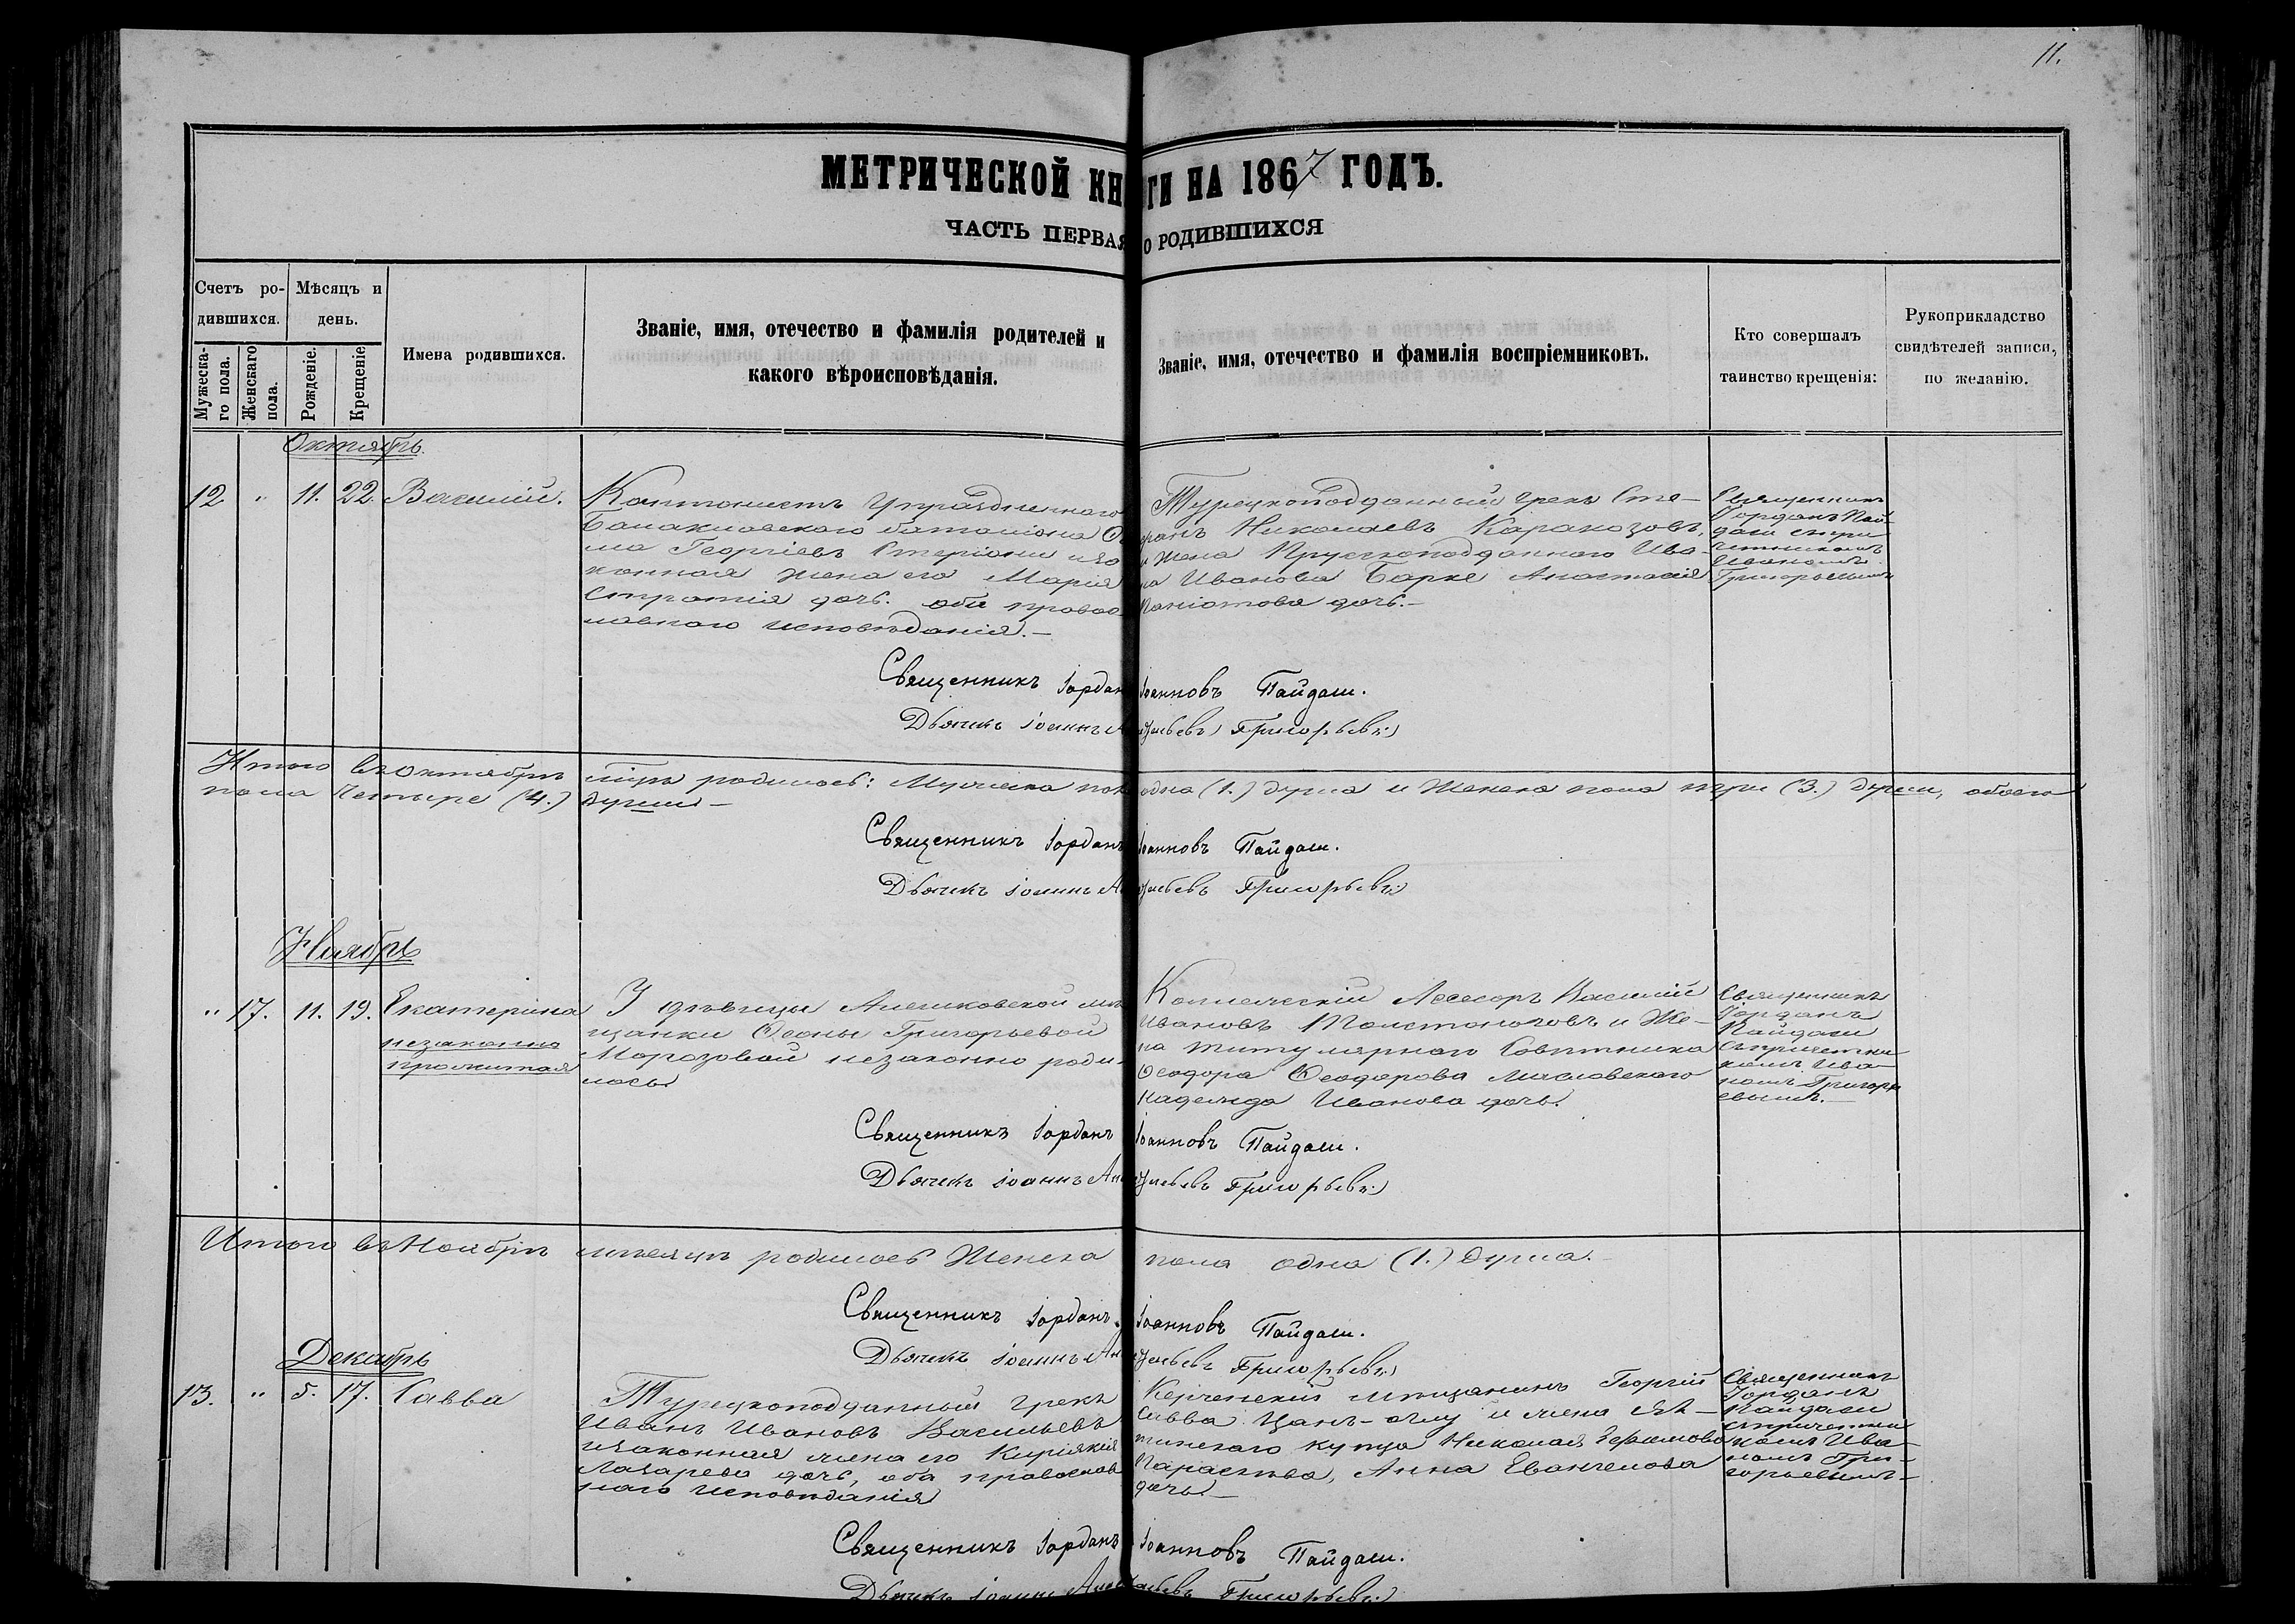 11.
МЕТРИЧЕСКОЙ КН ГИ НА 1867 ГОДЪ.
ЧАСТЬ ПЕРВАЯ О РОДИВШИХСЯ
Счетъ ро-
дившихся.
Мужеска-
го пола.
Женскаго
пола.
Мѣсяцъ и
день.
Рожденіе.
Крещеніе
Имена родившихся.
Званіе, имя, отечество и фамилія родителей и
какого вѣроисповѣданія.
Званіе, имя, отечество и фамилія воспріемниковъ.
Кто совершалъ
таинство крещенія:
Рукоприкладство
свидѣтелей записи,
по желанію.
Октябрь.
12 " 11. 22. Василій.
Кантонистъ Упраздненнаго
Балаклавскаго баталіона
ма Георгіевъ Стеріони и за
конная жена его Марія
Стратія дочь. оба правос
лавнаго исповѣданія.—
Турецкоподданный грекъ Сте-
фанъ Николаевъ Каракозовъ,
и жена Прусскоподданнаго Ива-
на Иванова Барке Анастасія
Паніотова дочь.—
Священникъ
Іорданъ Пай-
даши съ при
четникомъ
Иваномъ
Григорьевымъ
Священникъ Іорданъ Іоанновъ Пайдаши.
Дьячекъ Іоаннъ Григорьевъ:)
Итого въ Октябрѣ м-цѣ родилось: Мужеска пол одна (1.) душа и Женска пола три (3.) души, обоего
пола Четыре (4.) души—
Священникъ Іорданъ Іоанновъ Пайдаши.
Дьячекъ Іоаннъ Григорьевъ:)
Ноябрь
" 17. 11. 19. Екатерина
незаконно
прижитая
У дѣвицы Алешковской мѣ
щанки Ѳеоны Григорьевой
Морозовой незаконно роди-
лась.
Коллежскій Ассесоръ Василій
Ивановъ Толстопоговъ и Же-
на титулярнаго Совѣтника
Ѳеодора Ѳеодорова Масловскаго
Надежда Иванова дочь.
Священникъ
Іорданъ
Пайдаши
съ причетни
комъ Ива
номъ Григорь
евымъ.—
Священникъ Іорданъ Іоанновъ Пайдаши.
Дьячекъ Іоаннъ Григорьевъ:)
Итого въ Ноябрѣ мѣсяцѣ родилось Женска пола одна (1.) душа.
Священникъ Іорданъ Іоанновъ Пайдаши.
Дьячекъ Іоаннъ Григорьевъ:)
Декабрь
13. " 5. 17. Савва
Турецкоподданный грекъ
Иванъ Ивановъ Васильевъ
и законная жена его Киріякія
Лазарева дочь, оба православ
наго исповѣданія
Керченскій мѣщанинъ Георгій
Савва Цанъ-оглу и жена
тинскаго купца Николая
Параскева, Анна Евангелова
дочь.—
Священникъ
Іорданъ
Пайдаши
съ причетни
комъ Ива
номъ Гри-
горьевымъ—
Священникъ Іорданъ Іоанновъ Пайдаши.
Дьячекъ Іоаннъ Григорьевъ:)